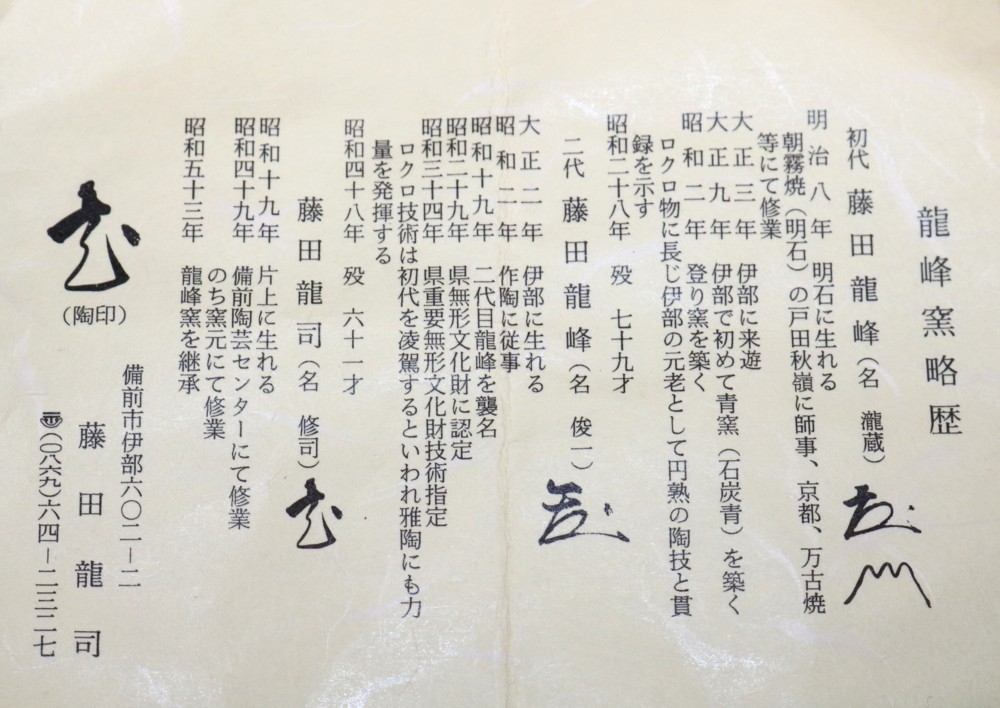 龍峰窯略歴
初代 藤田龍峰（名 瀧蔵）
明治八年 明石に生れる
朝霧焼（明石）の戸田秋嶺に師事、京都、万古焼
等にて修業
大正三年 伊部に来遊
大正九年 伊部で初めて青窯（石炭青）を築く
昭和二年 登り窯を築く
ロクロ物に長じ伊部の元老として円熟の陶技と貫
録を示す
昭和二十八年 歿 七十九才
二代 藤田龍峰（名 俊一）
大正二年 伊部に生れる
昭和二年 作陶に従事
昭和十九年 二代目龍峰を襲名
昭和二十九年 県無形文化財に認定
昭和三十四年 県重要無形文化財技術指定
ロクロ技術は初代を凌駕するといわれ雅陶にも力
量を発揮する
昭和四十八年 歿 六十一才
藤田龍司（名 修司）
昭和十九年 片上に生れる
昭和四十九年 備前陶芸センターにて修業
のち窯元にて修業
昭和五十三年 龍峰窯を継承
（陶印）
備前市伊部六〇二－二
藤田龍司
☎（〇八六九）六四－二三二七